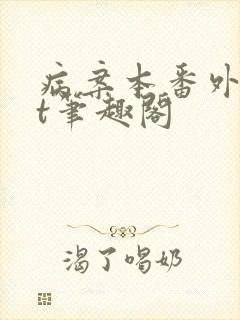 病案本番外
t笔趣阁
渴了喝奶